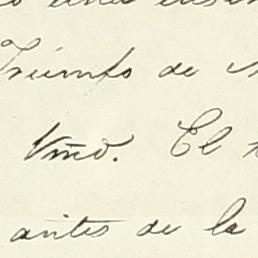 Triumfo de
Vino. El
antes de la